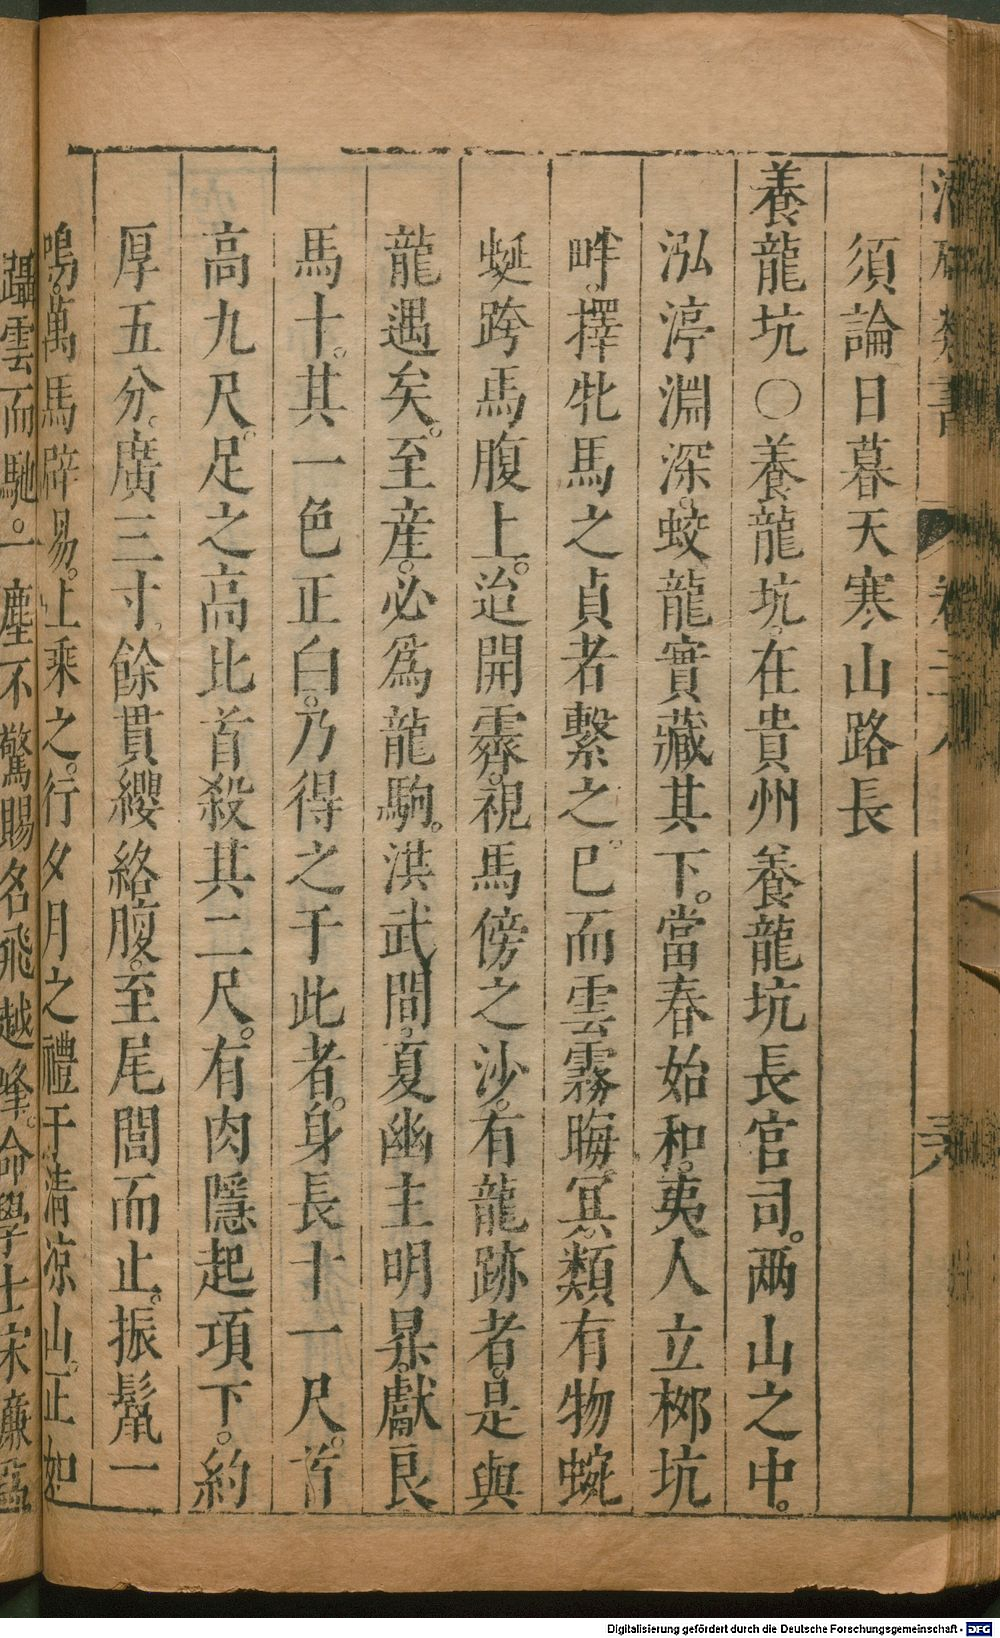 須論日暮天寒山路長
養龍坑〇養龍坑在貴州養龍坑長官司。两山之中。
泓渟淵深。蛟龍實藏其下。當春始和。夷人立桞坑
畔。擇牝馬之貞者繫之。已而雲霧晦冥。類有物蜿
蜒跨馬腹上。迨開霽。視馬傍之沙。有龍跡者。是與
龍遇矣。至産。必爲龍駒。洪武間。夏幽主明昇。獻良
馬十。其一色正白。乃得之于此者。身長十一尺。首
高九尺。足之高比首殺其二尺。有肉隱起項下。約
厚五分。廣三寸。餘貫纓絡腹。至尾閭而止。振鬣一
鳴。萬馬辟易。上乘之。行夕月之禮于清凉山。正如
躡雲而馳。一塵不驚賜名飛越峰。命學士宋濂爲
Digitalisierung gefördert durch die Deutsche Forschungsgemeinschaft - DFG